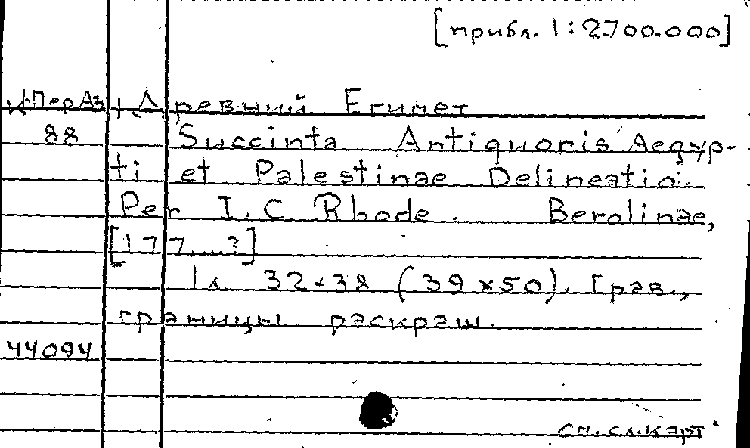 [прибл. 1:2.700.000]
К ПерАз Древний Египет
88 Succinta Antiquoris Aegyp-
ti et Palestinae Delineatio.
Per I. C. Rhode. Berolinae,
[177...?]
1 л. 32×38 (39×50). Грав.,
границы раскраш.
44094
см. сл. карт.